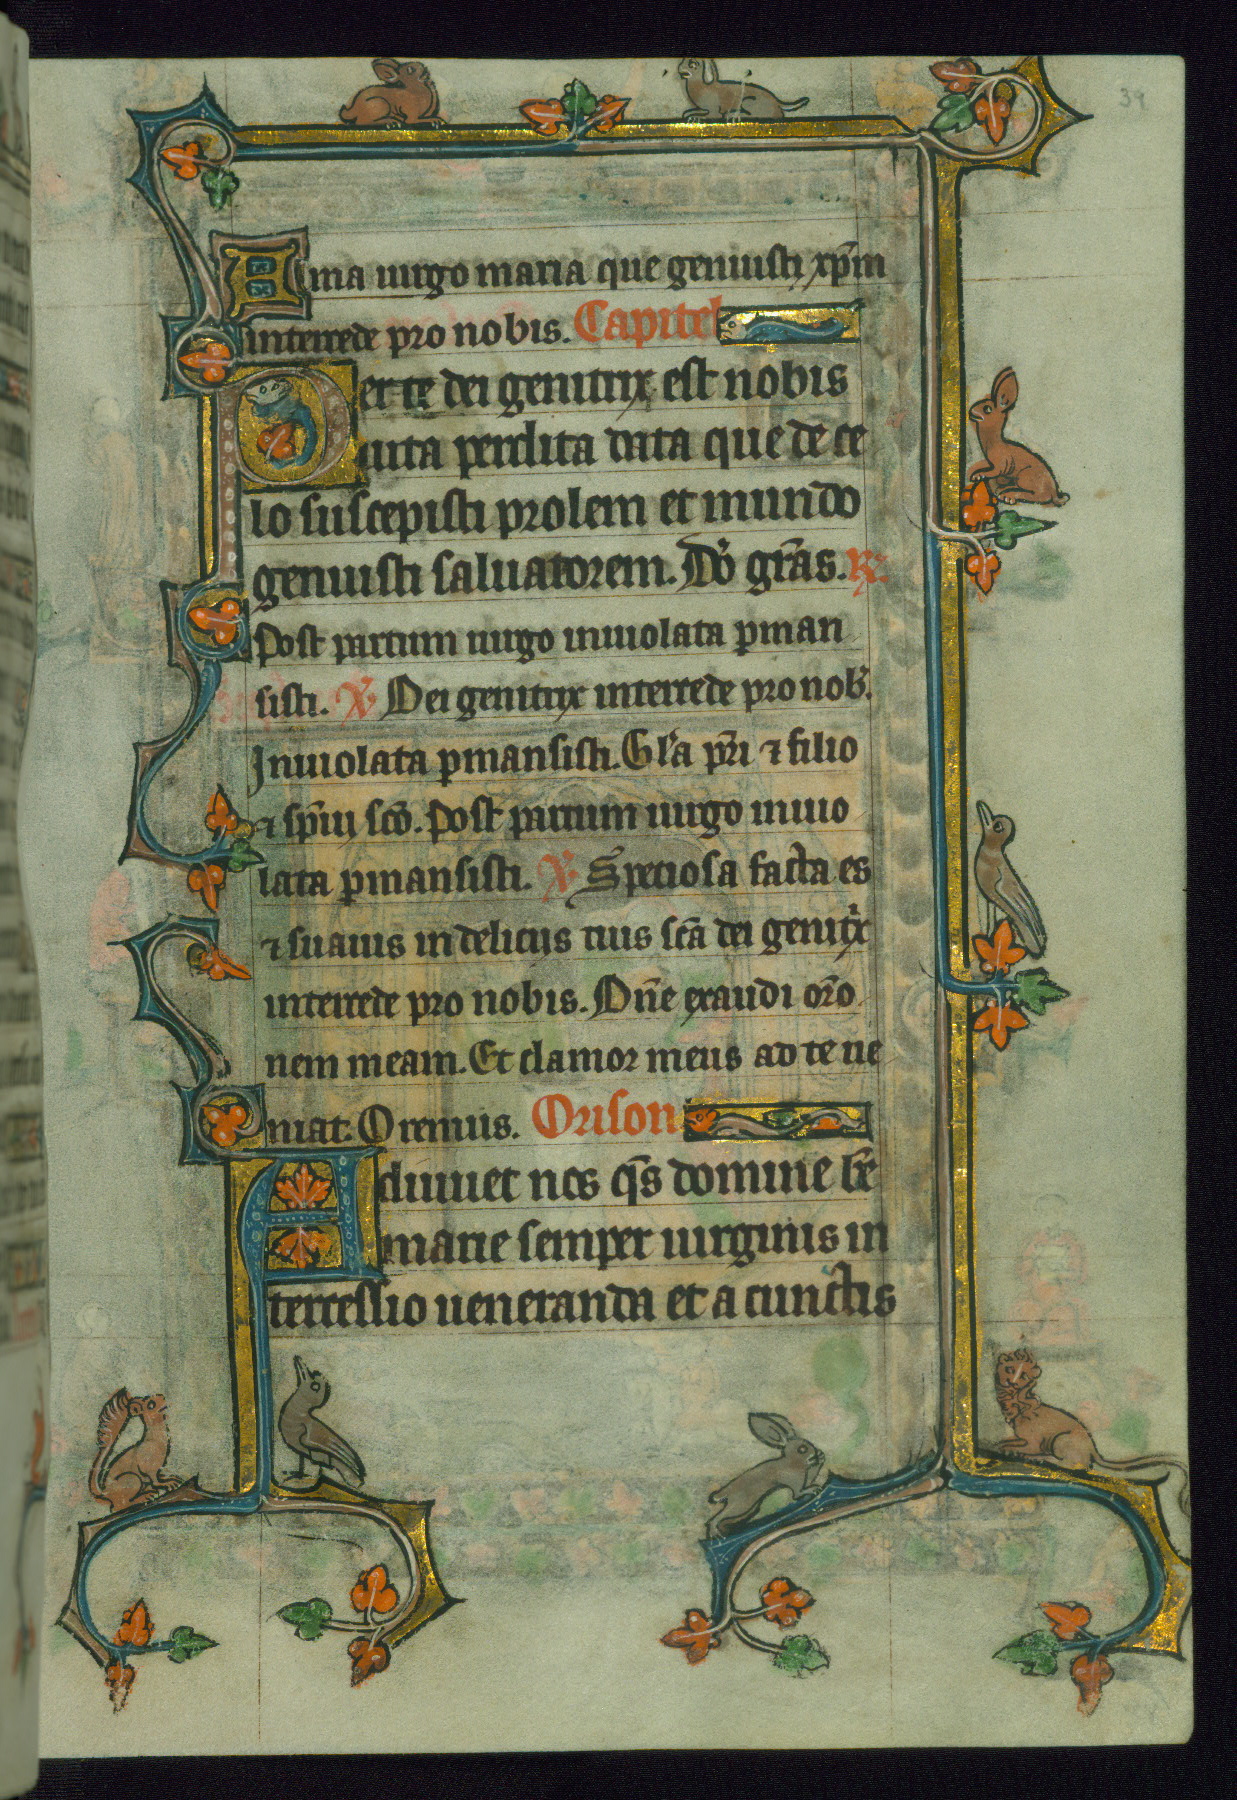 39
Alma uirgo maria que genuisti xp̄m
intercede pro nobis. Capitel
Per te dei genitrix est nobis
uita perdita data que de ce
lo suscepisti prolem et mundo
genuisti saluatorem. Dō gr̄as. R̄.
Post partum uirgo inuiolata pman
sisti. V̄ Dei genitrix intercede pro nob̄.
Inuiolata pmansisti. Gl̄a pr̄i ⁊ filio
⁊ sp̄ui sc̄o. Post partum uirgo inuio
lata pmansisti. V̄ Speciosa facta es
⁊ suauis in deliciis tuis sc̄a dei genitͥx
intercede pro nobis. Dn̄e exaudi or̄o
nem meam. Et clamor meus ad te ue
niat. Oremus. Orison
Adiuuet nos q̄s domine b̄e
marie semper uirginis in
tercessio ueneranda et a cunctis